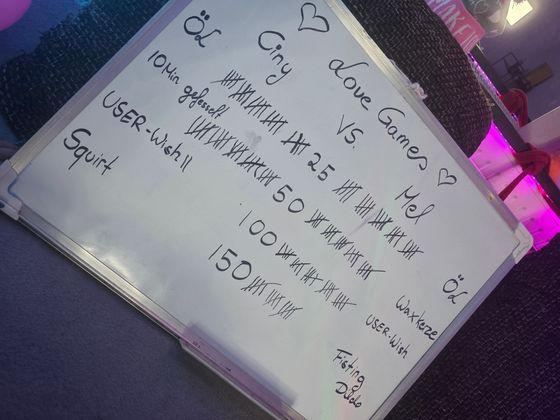 ♡ Love Games ♡
Öl Ciny VS. Mel Öl
10 Min gefesselt 25 Waxkerze
USER-Wish II 50 USER-Wish
Squirt 100 Fisting
150 Dildo